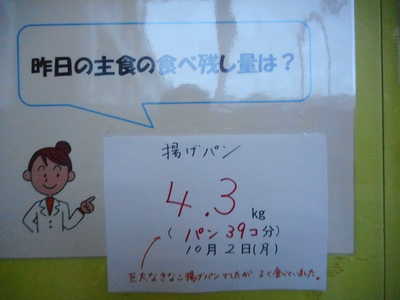 昨日の主食の食べ残し量は？
揚げパン
4.3 kg
(パン39コ分)
10月2日(月)
巨大なきなこ揚げパンでしたが よく食べていました。